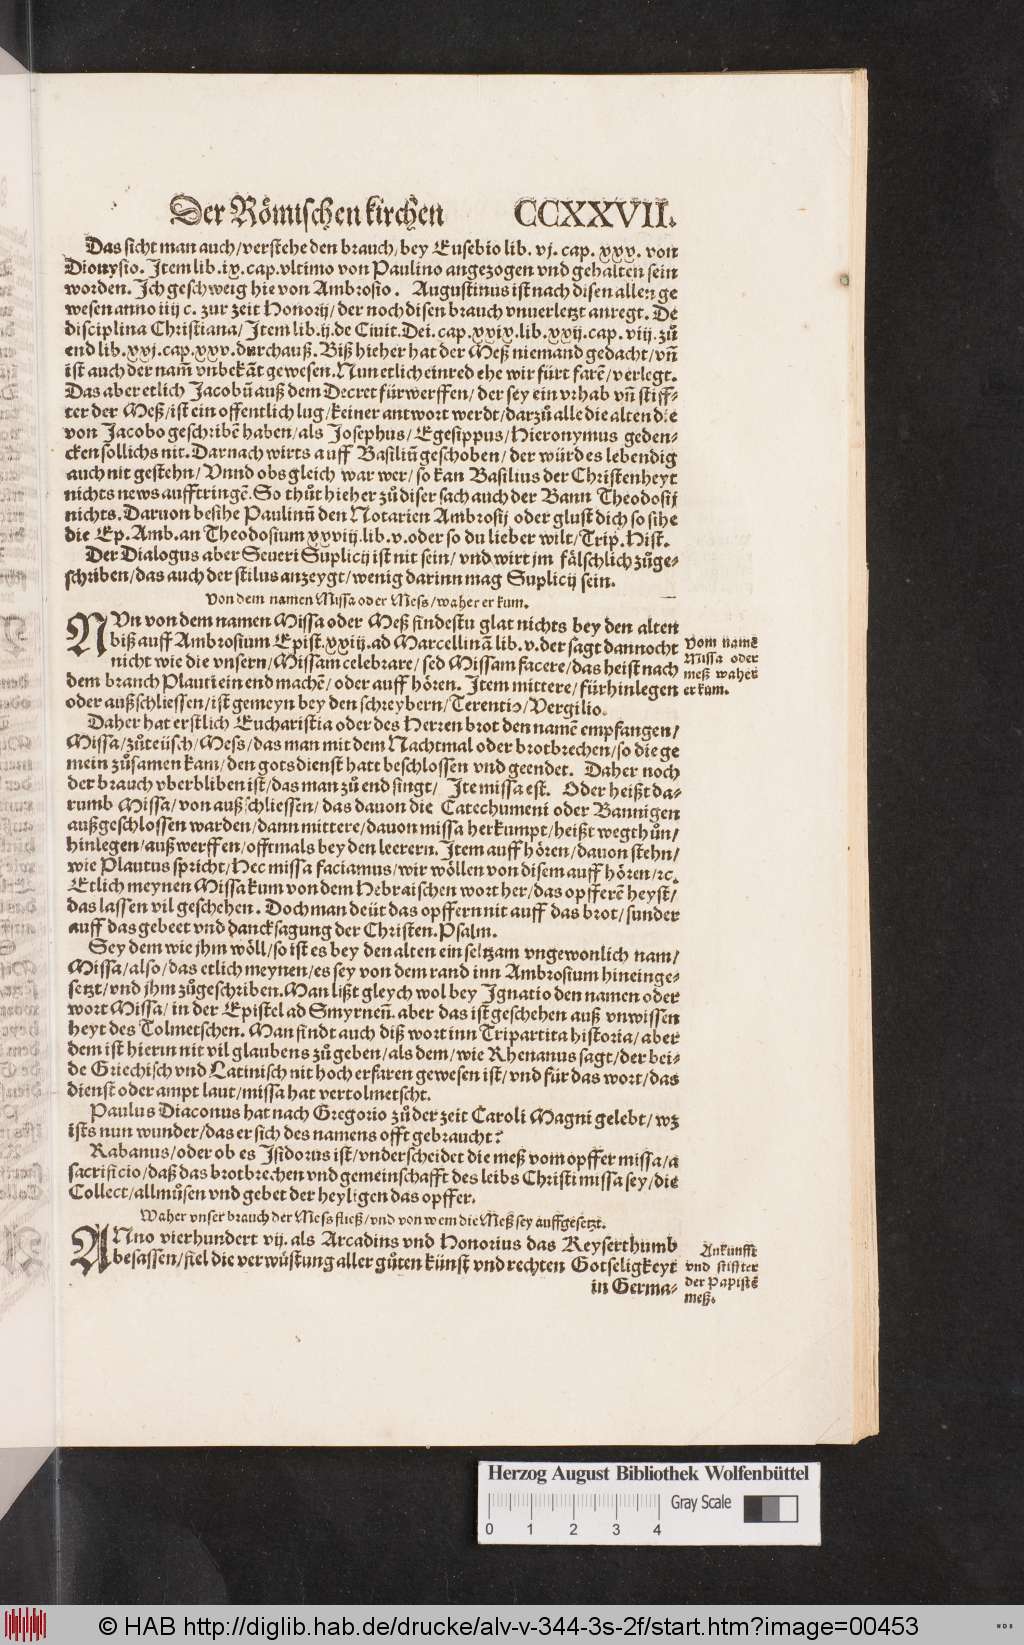 Der Römischen kirchen CCXXVII.
Das sicht man auch/verstehe den brauch/bey Eusebio lib. vj. cap. xxx. von
Dionysio. Item lib. ix. cap. vltimo von Paulino angezogen vnd gehalten sein
worden. Ich geschweig hie von Ambrosio. Augustinus ist nach disen allen ge
wesen anno iiij c. zur zeit Honorij/der noch disen brauch vnuerletzt anregt. De
disciplina Christiana/Item lib. ij. de Ciuit. Dei. cap. xxix. lib. xxij. cap. viij. zů
end lib. xxj. cap. xxv. durchauß. Biß hieher hat der Meß niemand gedacht/vñ
ist auch der nam̃ vnbekãt gewesen. Nun etlich einred ehe wir fürt farẽ/verlegt.
Das aber etlich Jacobũ auß dem Decret fürwerffen/der sey ein vrhab vñ stiff-
ter der Meß/ist ein offentlich lug/keiner antwort werdt/darzů alle die alten die
von Jacobo geschribẽ haben/als Josephus/Egesippus/Hieronymus geden-
cken sollichs nit. Darnach wirts auff Basiliũ geschoben/der würd es lebendig
auch nit gestehn/Vnnd obs gleich war wer/so kan Basilius der Christenheyt
nichts news aufftringẽ. So thůt hieher zů diser sach auch der Bann Theodosij
nichts. Daruon besihe Paulinũ den Notarien Ambrosij oder glust dich so sihe
die Ep. Amb. an Theodosium xxviij. lib. v. oder so du lieber wilt/Trip. Hist.
Der Dialogus aber Seueri Suplicij ist nit sein/vnd wirt jm fälschlich zůge-
schriben/das auch der stilus anzeygt/wenig darinn mag Suplicij sein.
Von dem namen Missa oder Mess/waher er kum.
NVn von dem namen Missa oder Meß findestu glat nichts bey den alten
biß auff Ambrosium Epist. xxiij. ad Marcellinã lib. v. der sagt dannocht
nicht wie die vnsern/Missam celebrare/sed Missam facere/das heist nach
dem brauch Plauti ein end machẽ/oder auff hören. Item mittere/fürhinlegen
oder außschliessen/ist gemeyn bey den schreybern/Terentio/Vergilio.
Vom namẽ
Missa oder
meß waher
er kum.
Daher hat erstlich Eucharistia oder des Herren brot den namẽ empfangen/
Missa/zůteüsch/Mess/das man mit dem Nachtmal oder brotbrechen/so die ge
mein zůsamen kam/den gotsdienst hatt beschlossen vnd geendet. Daher noch
der brauch vberbliben ist/das man zů end singt/ Ite missa est. Oder heißt da-
rumb Missa/von außschliessen/das dauon die Catechumeni oder Bannigen
außgeschlossen warden/dann mittere/dauon missa herkumpt/heißt wegthůn/
hinlegen/außwerffen/offtmals bey den leerern. Item auff hören/dauon stehn/
wie Plautus spricht/Hec missa faciamus/wir wöllen von disem auff hören/ꝛc.
Etlich meynen Missa kum von dem Hebraischen wort her/das opfferẽ heyst/
das lassen vil geschehen. Doch man deüt das opffern nit auff das brot/sunder
auff das gebeet vnd dancksagung der Christen. Psalm.
Sey dem wie jhm wöll/so ist es bey den alten ein seltzam vngewonlich nam/
Missa/also/das etlich meynen/es sey von dem rand inn Ambrosium hineinge-
setzt/vnd jhm zůgeschriben. Man lißt gleych wol bey Ignatio den namen oder
wort Missa/in der Epistel ad Smyrneñ. aber das ist geschehen auß vnwissen
heyt des Tolmetschen. Man findt auch diß wort inn Tripartita historia/aber
dem ist hierin nit vil glaubens zů geben/als dem/wie Rhenanus sagt/der bei-
de Griechisch vnd Latinisch nit hoch erfaren gewesen ist/vnd für das wort/das
dienst oder ampt laut/missa hat vertolmetscht.
Paulus Diaconus hat nach Gregorio zů der zeit Caroli Magni gelebt/wz
ists nun wunder/das er sich des namens offt gebraucht?
Rabanus/oder ob es Isidorus ist/vnderscheidet die meß vom opffer missa/a
sacrificio/daß das brotbrechen vnd gemeinschafft des leibs Christi missa sey/die
Collect/allmůsen vnd gebet der heyligen das opffer.
Waher vnser brauch der Mess fließ/vnd von wem die Meß sey auffgesetzt.
ANno vierhundert vij. als Arcadius vnd Honorius das Keyserthumb
besassen/fiel die verwüstung aller gůten künst vnd rechten Gotseligkeyt
in Germa-
Ankunfft
vnd stiffter
der Papistẽ
meß.
Herzog August Bibliothek Wolfenbüttel
Gray Scale
0 1 2 3 4
© HAB http://diglib.hab.de/drucke/alv-v-344-3s-2f/start.htm?image=00453